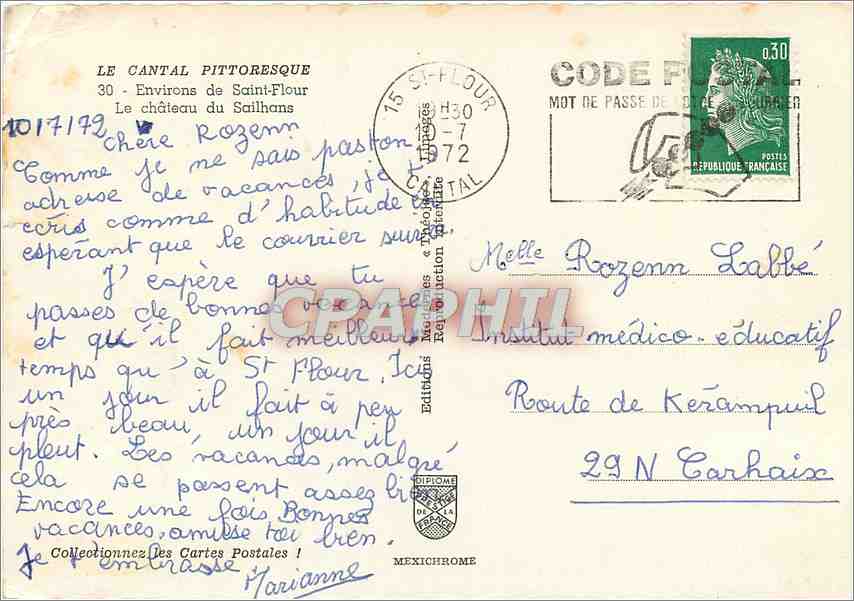 LE CANTAL PITTORESQUE
30 - Environs de Saint-Flour
Le château du Sailhans
10/7/72
Chère Rozenn
Comme je ne sais pas ton
adresse de vacances, je t'
écris comme d'habitude en
espérant que le courrier suivra.
J'espère que tu
passes de bonnes vacances
et qu'il fait meilleur
temps qu'à St Flour. Ici
un jour il fait à peu
près beau, un jour il
pleut. Les vacances, malgré
cela se passent assez bien.
Encore une fois Bonnes
vacances, amuse toi bien.
Je t'embrasse
Marianne
Collectionnez les Cartes Postales !
Editions Modernes « Théojac », Limoges
Reproduction Interdite
DIPLOME
PRESTIGE
DE LA
FRANCE
MEXICHROME
15 ST-FLOUR
H 30
10-7
1972
CANTAL
CODE POSTAL
MOT DE PASSE DE VOTRE COURRIER
0,30
POSTES
RÉPUBLIQUE FRANÇAISE
Melle Rozenn Labbé
Institut médico-éducatif
Route de Kerampuil
29N Carhaix
CPAPHIL